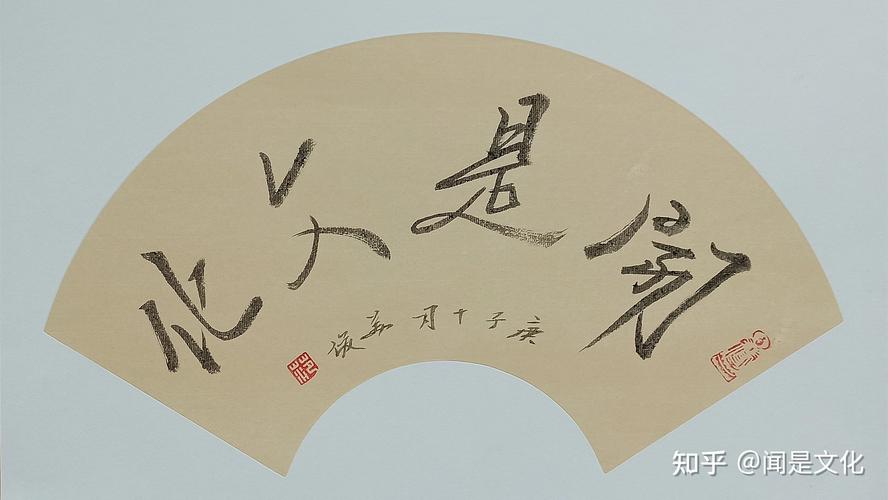 闻是文化
庚子十月
知乎 @闻是文化